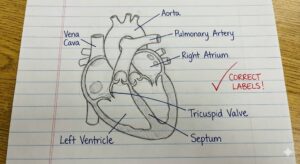 Aorta
Vena
Cava
Pulmonary Artery
Right Atrium
✓ CORRECT
LABELS!
Tricuspid Valve
Left Ventricle
Septum